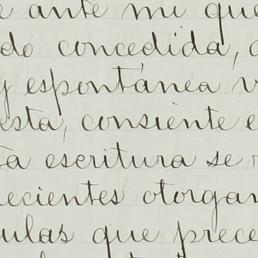 e ante mi que
do concedida,
y espontánea v
esta, consiente e
ta escritura se
ecientes otorgan
ulas que prece